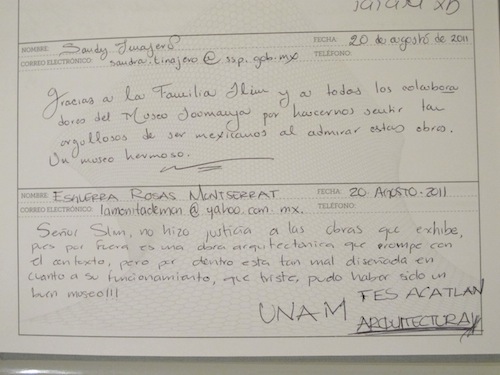 NOMBRE: Sandy Tinajero FECHA: 20 de agosto de 2011
CORREO ELECTRÓNICO: sandra.tinajero@ssp.gob.mx TELÉFONO:
Gracias a la Familia Slim y a todos los colabora
dores del Museo Soomaya por hascernos sentir tan
orgullosos de ser mexicanos al admirar estas obras.
Un museo hermoso.
NOMBRE: ESQUERRA ROSAS MONTSERRAT FECHA: 20 AGOSTO 2011
CORREO ELECTRÓNICO: lamonitademon@yahoo.com.mx. TELÉFONO:
Señor Slim, no hizo justicia a las obras que exhibe,
pues por fuera es una obra arquitectonica que rompe con
el contexto, pero por dentro esta tan mal diseñada en
cuanto a su funcionamiento, que triste, pudo haber sido un
buen museo!!!
UNAM FES ACATLAN
ARQUITECTURA